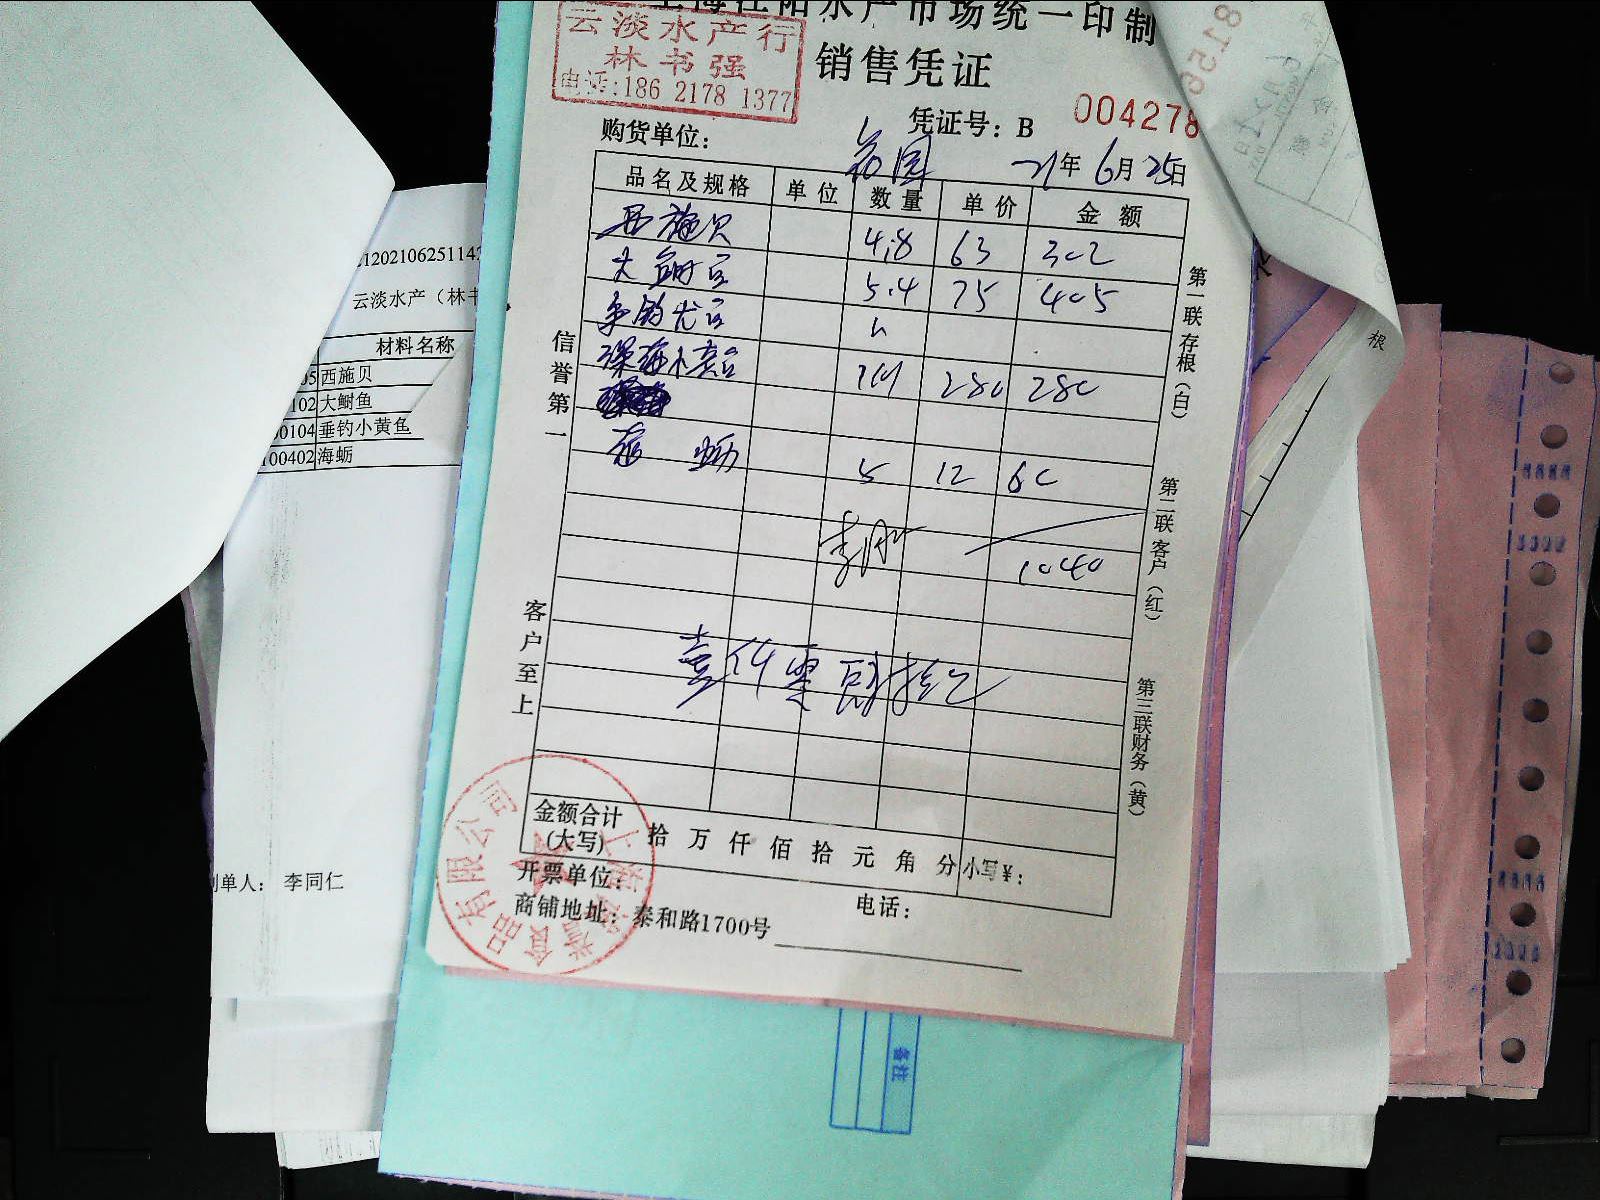 上海江阳水产市场统一印制
销售凭证
云淡水产行
林书强
电话:186 2178 1377
凭证号: B 004278
购货单位:
21年6月25日
品名及规格 单位 数量 单价 金额
西施贝 4.8 63 302
大鲥鱼 5.4 75 405
深海小黄鱼 280 280
蛎 5 12 60
1040
壹仟零肆拾元
信誉第一
客户至上
第一联存根(白)
第二联客户(红)
第三联财务(黄)
金额合计
(大写) 拾 万 仟 佰 拾 元 角 分 小写¥:
开票单位:
电话:
商铺地址: 泰和路1700号
食品有限公司
1202106251142
云淡水产(林书
材料名称
05 西施贝
102 大鲥鱼
0104 垂钓小黄鱼
100402 海蛎
制单人: 李同仁
备注
根